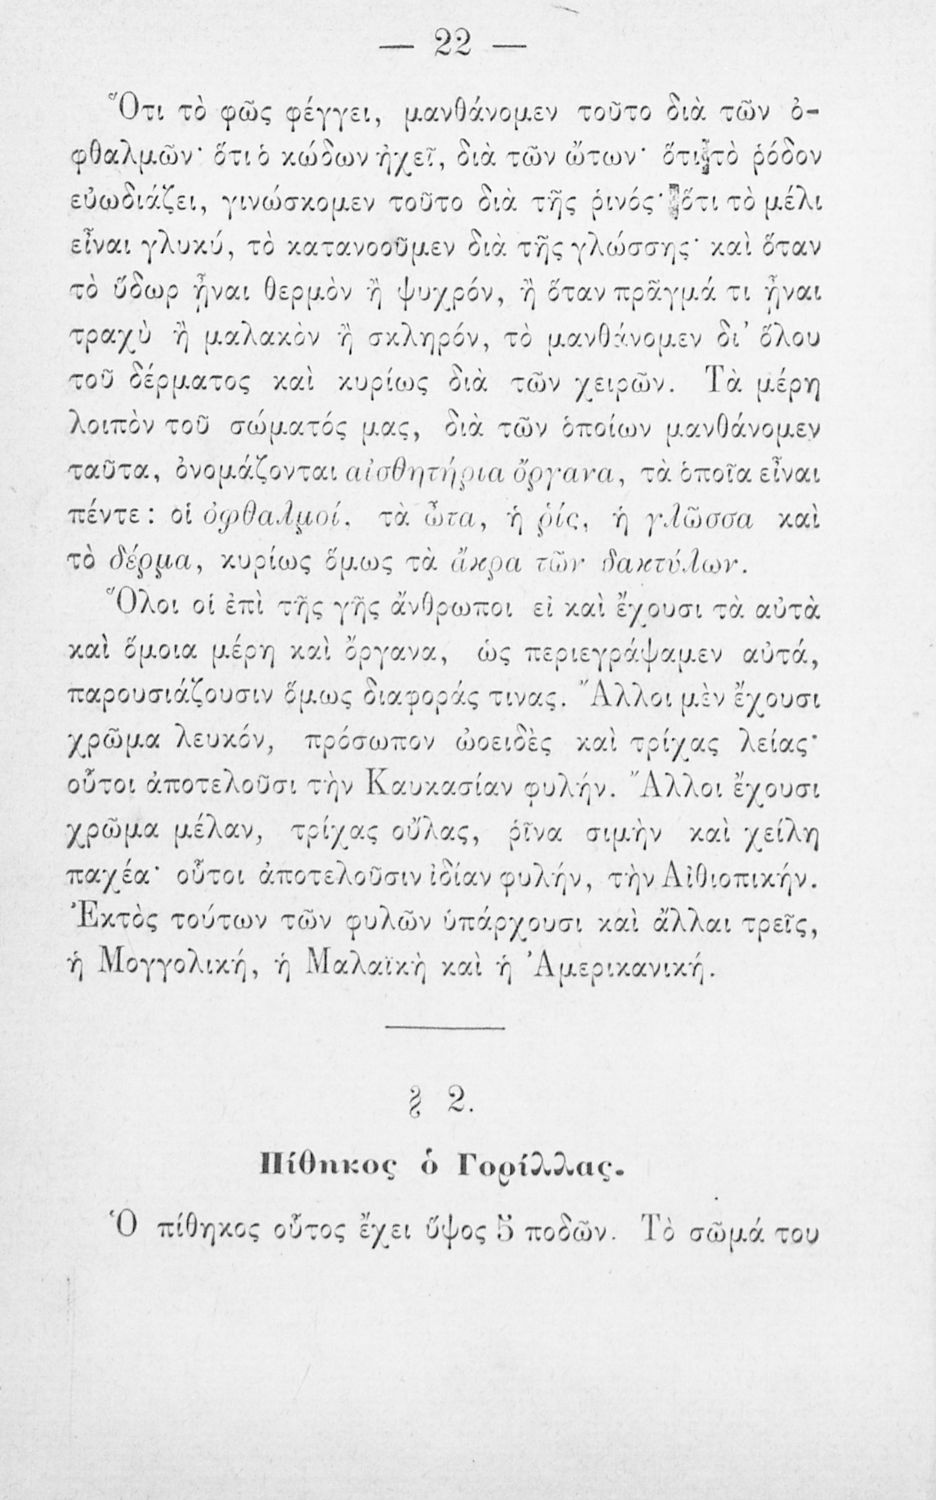 — 22 —
Ὅτι τὸ φῶς φέγγει, μανθάνομεν τοῦτο διὰ τῶν ὀ-
φθαλμῶν· ὅτι ὁ κώδων ἠχεῖ, διὰ τῶν ὤτων· ὅτι τὸ ῥόδον
εὐωδιάζει, γινώσκομεν τοῦτο διὰ τῆς ῥινός· ὅτι τὸ μέλι
εἶναι γλυκύ, τὸ κατανοοῦμεν διὰ τῆς γλώσσης· καὶ ὅταν
τὸ ὕδωρ ᾖναι θερμὸν ἢ ψυχρόν, ἢ ὅταν πρᾶγμά τι ᾖναι
τραχὺ ἢ μαλακὸν ἢ σκληρόν, τὸ μανθάνομεν δι᾿ ὅλου
τοῦ δέρματος καὶ κυρίως διὰ τῶν χειρῶν. Τὰ μέρη
λοιπὸν τοῦ σώματός μας, διὰ τῶν ὁποίων μανθάνομεν
ταῦτα, ὀνομάζονται αἰσθητήρια ὄργανα, τὰ ὁποῖα εἶναι
πέντε: οἱ ὀφθαλμοί, τὰ ὦτα, ἡ ῥίς, ἡ γλῶσσα καὶ
τὸ δέρμα, κυρίως ὅμως τὰ ἄκρα τῶν δακτύλων.
Ὅλοι οἱ ἐπὶ τῆς γῆς ἄνθρωποι εἰ καὶ ἔχουσι τὰ αὐτὰ
καὶ ὅμοια μέρη καὶ ὄργανα, ὡς περιεγράψαμεν αὐτά,
παρουσιάζουσιν ὅμως διαφοράς τινας. Ἄλλοι μὲν ἔχουσι
χρῶμα λευκόν, πρόσωπον ὠοειδὲς καὶ τρίχας λείας·
οὗτοι ἀποτελοῦσι τὴν Καυκασίαν φυλήν. Ἄλλοι ἔχουσι
χρῶμα μέλαν, τρίχας οὔλας, ῥῖνα σιμὴν καὶ χείλη
παχέα· οὗτοι ἀποτελοῦσιν ἰδίαν φυλήν, τὴν Αἰθιοπικήν.
Ἐκτὸς τούτων τῶν φυλῶν ὑπάρχουσι καὶ ἄλλαι τρεῖς,
ἡ Μογγολική, ἡ Μαλαϊκὴ καὶ ἡ Ἀμερικανική.
§ 2.
Πίθηκος ὁ Γορίλλας.
Ὁ πίθηκος οὗτος ἔχει ὕψος 5 ποδῶν. Τὸ σῶμά του